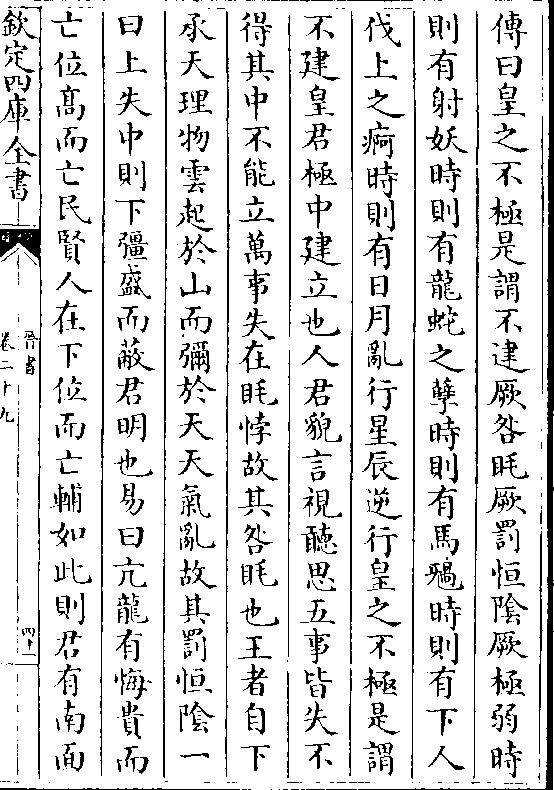 傳曰皇之不極是謂不建厥咎眊厥罰恒陰厥極弱時
則有射妖時則有龍蛇之孽時則有馬禍時則有下人
伐上之痾時則有日月亂行星辰逆行皇之不極是謂
不建皇君極中建立也人君貌言視聽思五事皆失不
得其中不能立萬事失在眊悖故其咎眊也王者自下
承天理物雲起於山而彌於天天氣亂故其罰恒陰一
曰上失中則下彊盛而蔽君明也易曰亢龍有悔貴而
亡位髙而亡民賢人在下位而亡輔如此則君有南面
欽定四庫全書
晉書
卷二十九
四十